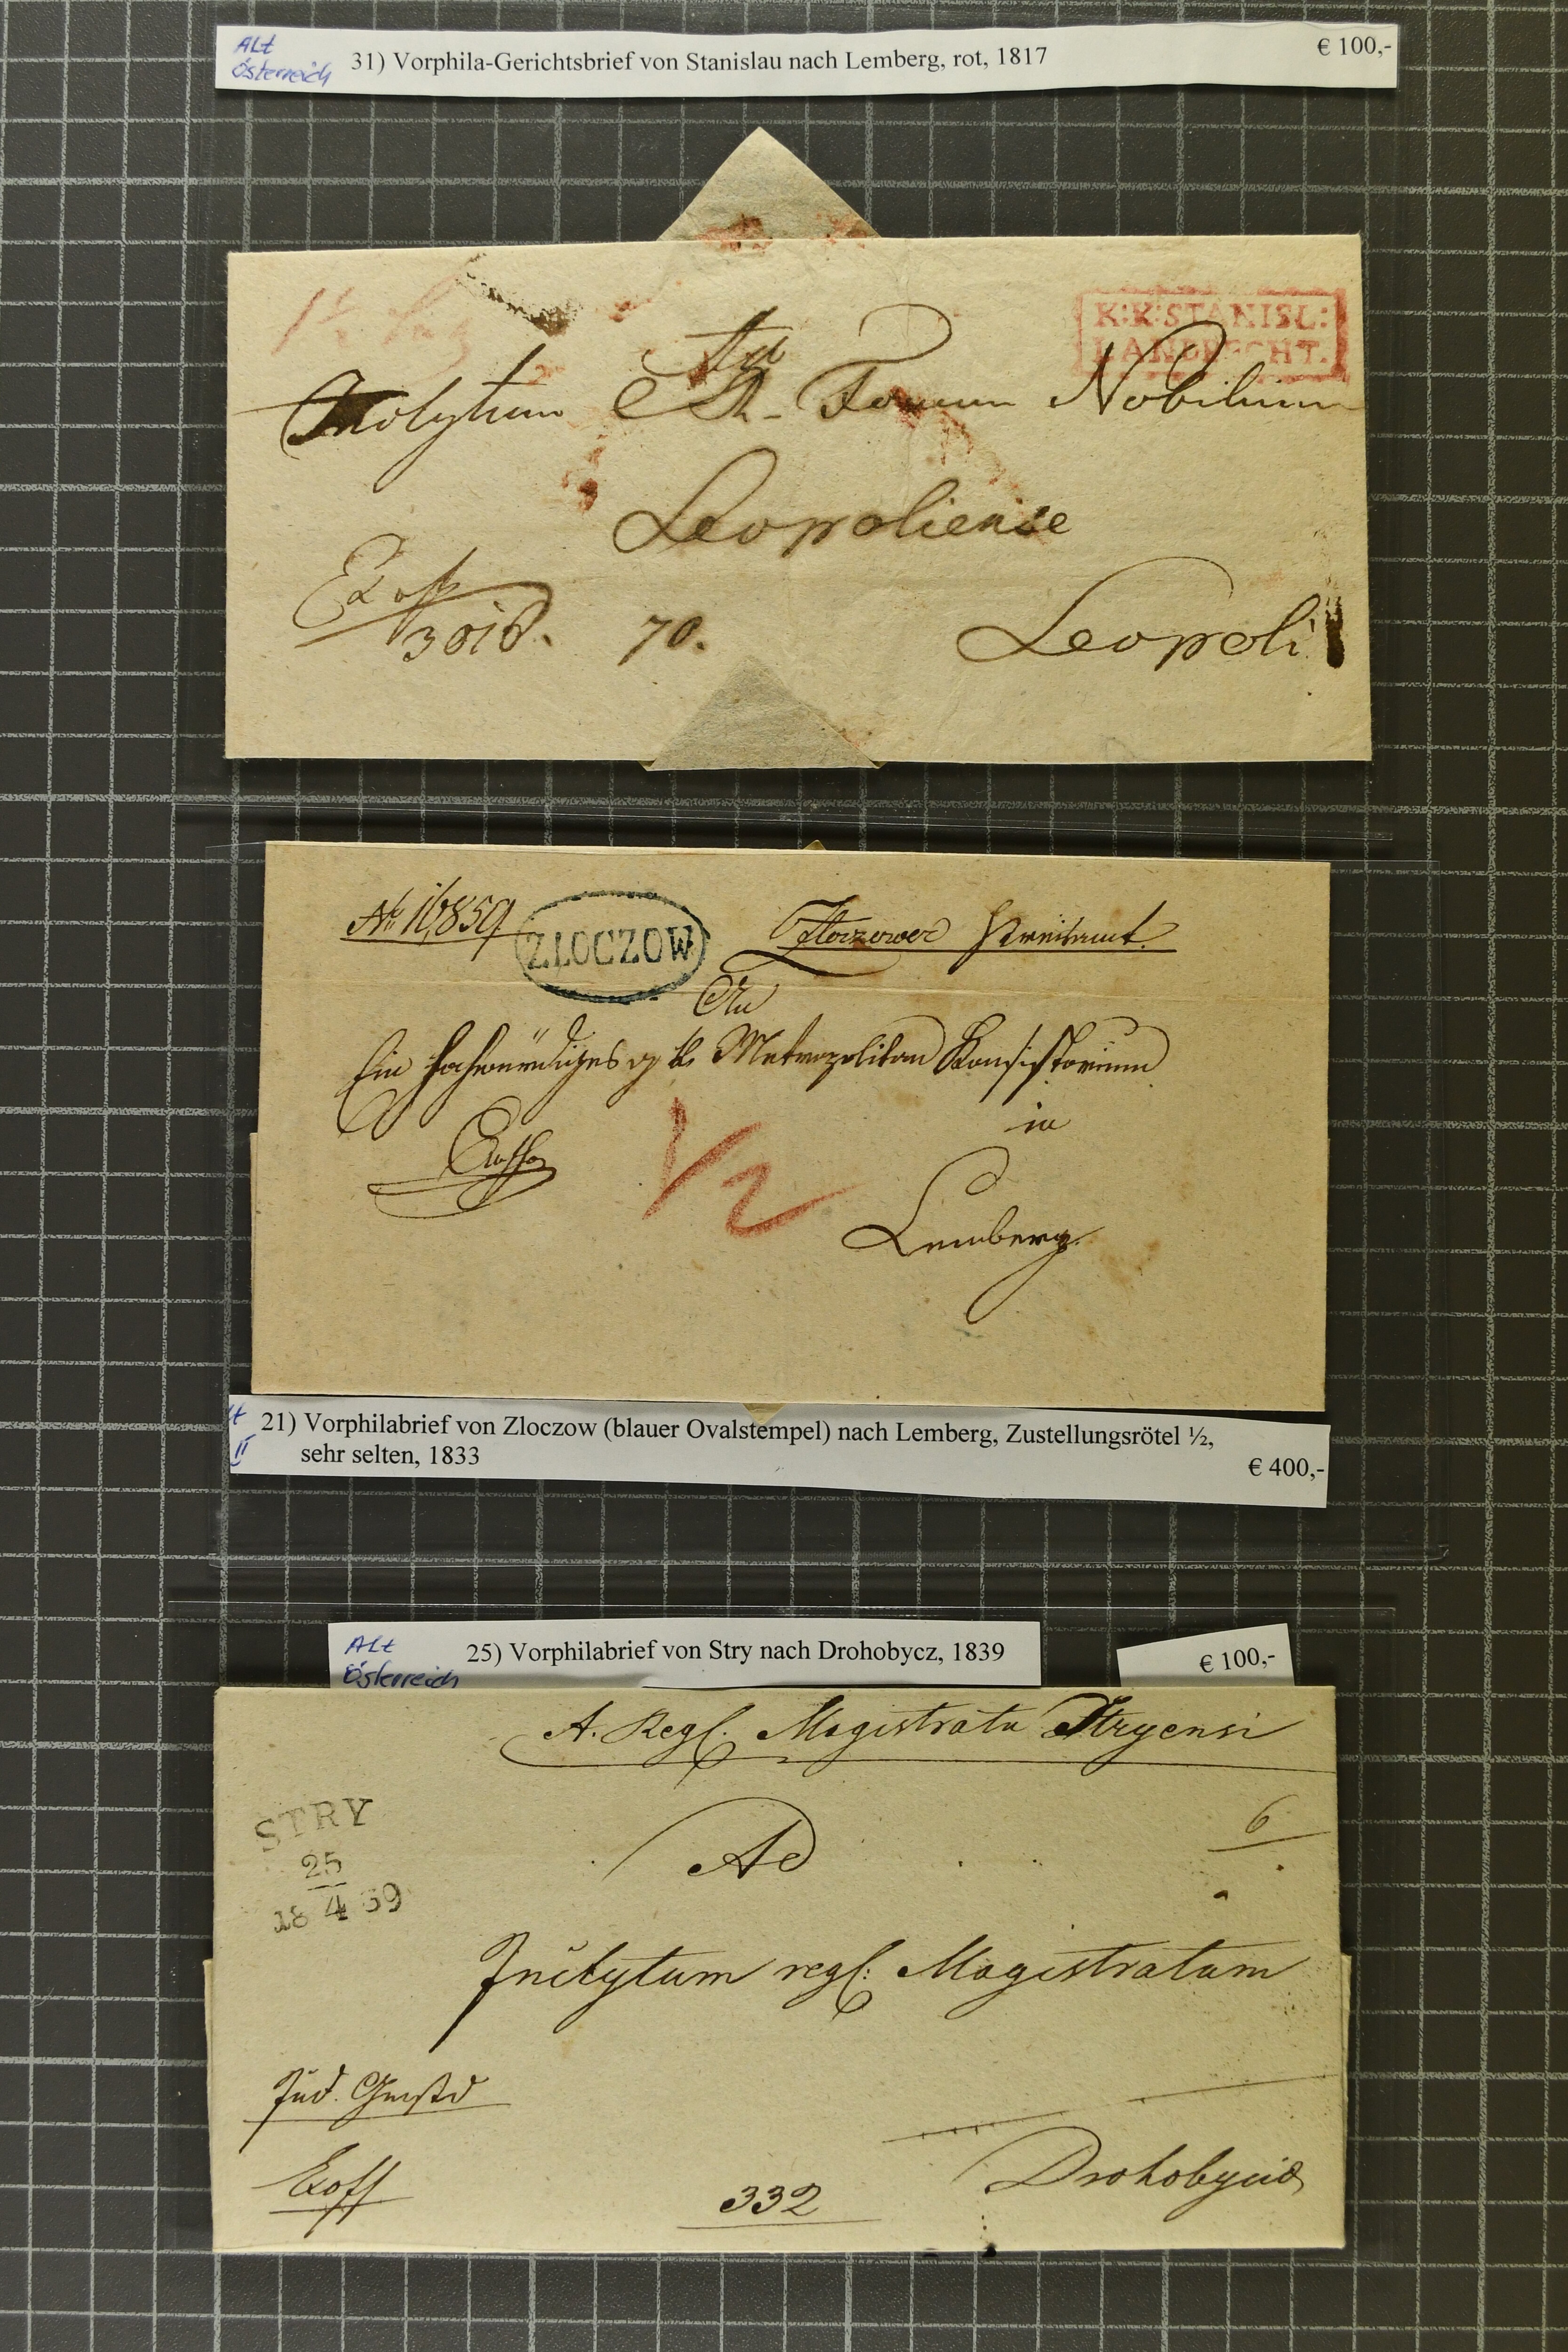 Alt
Österreich
31) Vorphila-Gerichtsbrief von Stanislau nach Lemberg, rot, 1817
€ 100,-
K:K:STANISL:
LANDRECHT.
Ad
Inclytum Forum Nobilium
Leopoliense
Ex off
3016. 70.
Leopoli
No 16,859
ZLOCZOW
Złoczower Kreisamt.
An
Ein hochwürdiges Metropolitan Konsistorium
in
1/2
Lemberg.
21) Vorphilabrief von Zloczow (blauer Ovalstempel) nach Lemberg, Zustellungsrötel ½,
sehr selten, 1833
€ 400,-
Alt
Österreich
25) Vorphilabrief von Stry nach Drohobycz, 1839
€ 100,-
A. Regl. Magistratu Stryensi
STRY
25
18 4 39
6
Ad
Inclytum regl: Magistratum
Exoff
332